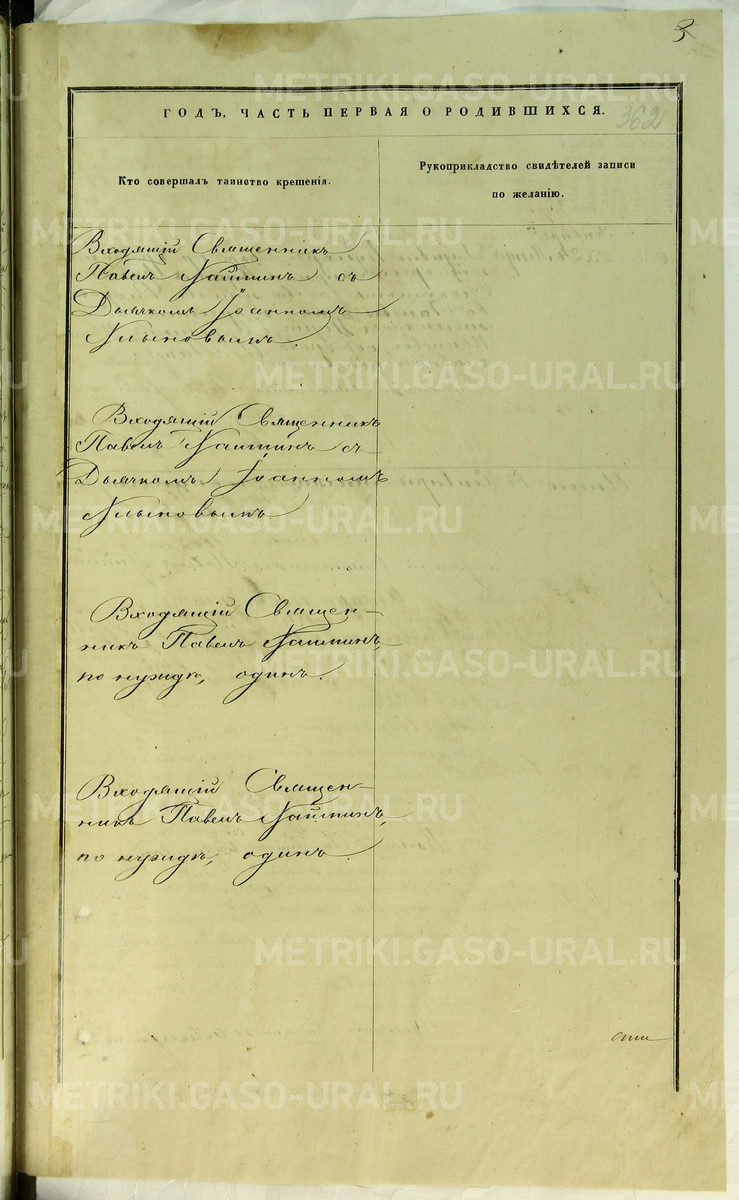 3
362
ГОДЪ, ЧАСТЬ ПЕРВАЯ О РОДИВШИХСЯ.
Кто совершалъ таинство крещенія.
Рукоприкладство свидѣтелей записи
по желанію.
Входящій Священникъ
Павелъ съ
Дьячкомъ Іоанномъ
Клыковымъ.
Входящій Священникъ
Павелъ съ
Дьячкомъ Іоанномъ
Клыковымъ.
Входящій Священ-
никъ Павелъ
по нуждѣ, одинъ.
Входящій Священ-
никъ Павелъ
по нуждѣ, одинъ.
METRIKI.GASO-URAL.RU